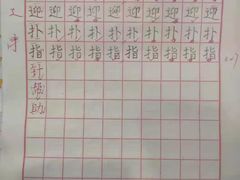 迎迎迎迎迎迎迎迎迎
扑扑扑扑扑扑扑扑扑
指指指指指指指指指
计
帮
助